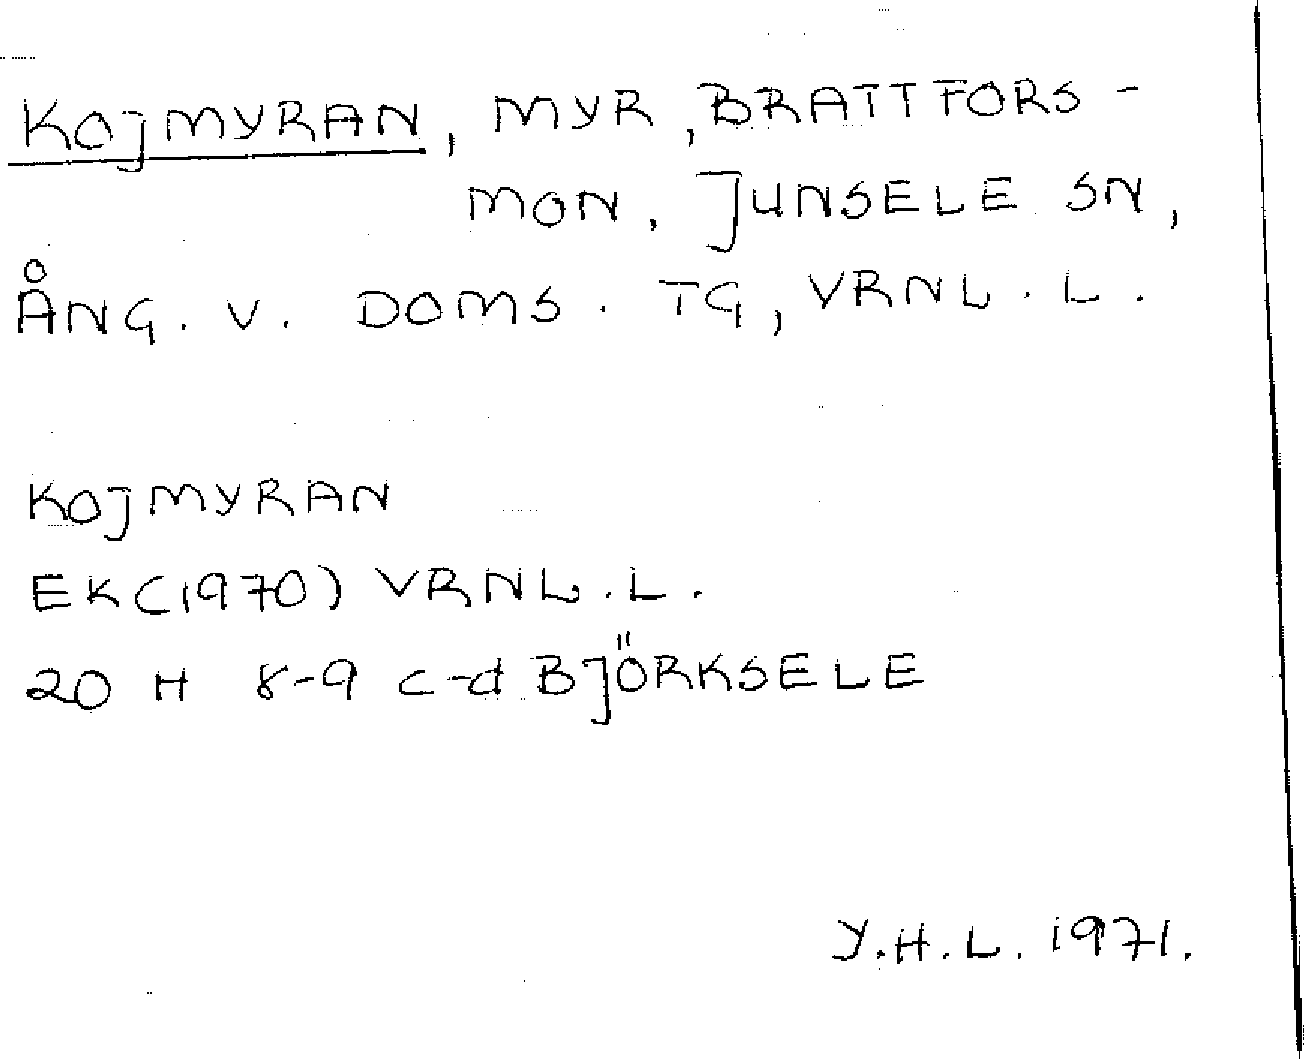 KOJMYRAN, MYR, BRATTFORS-
MON, JUNSELE SN,
ÅNG. V. DOMS. TG, VRNL. L.
KOJMYRAN
EK(1970) VRNL. L.
20 H 8-9 c-d BJÖRKSELE
Y.H.L. 1971.